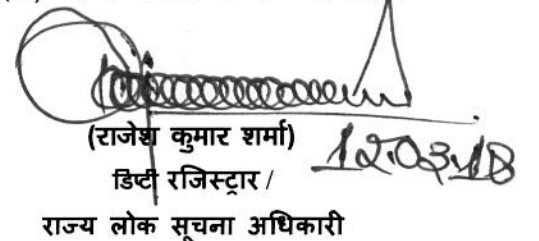 (राजेश कुमार शर्मा)
12.03.18
डिप्टी रजिस्ट्रार /
राज्य लोक सूचना अधिकारी